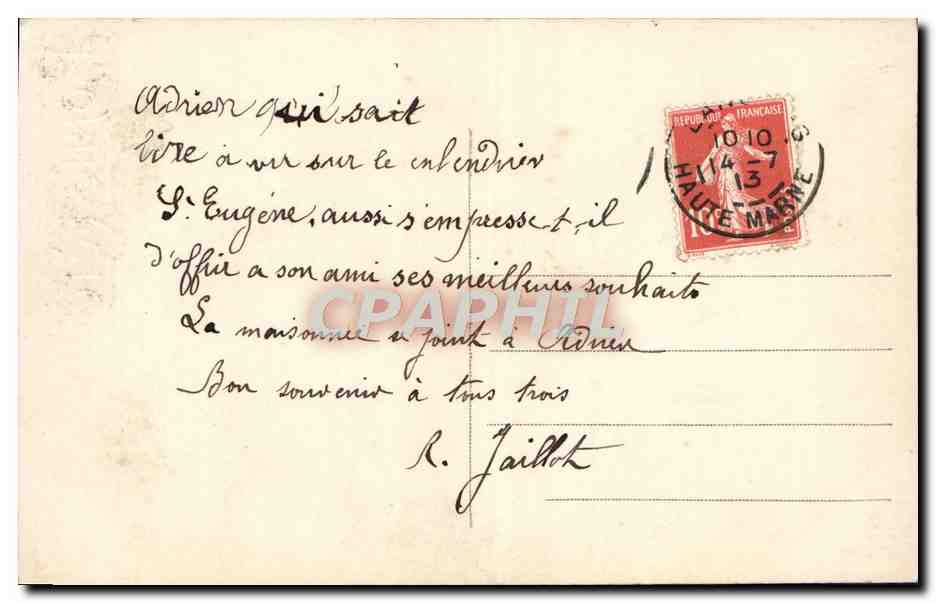 Adrien qui sait
lire a vu sur le calendrier
St Eugène, aussi s'empresse-t-il
d'offrir a son ami ses meilleurs souhaits
La maisonnée se joint à Adrien
Bon souvenir à tous trois
R. Jaillot
REPUBLIQUE FRANÇAISE
10
POSTES
10 10
14 - 7
13
HAUTE MARNE
CPAPHIL